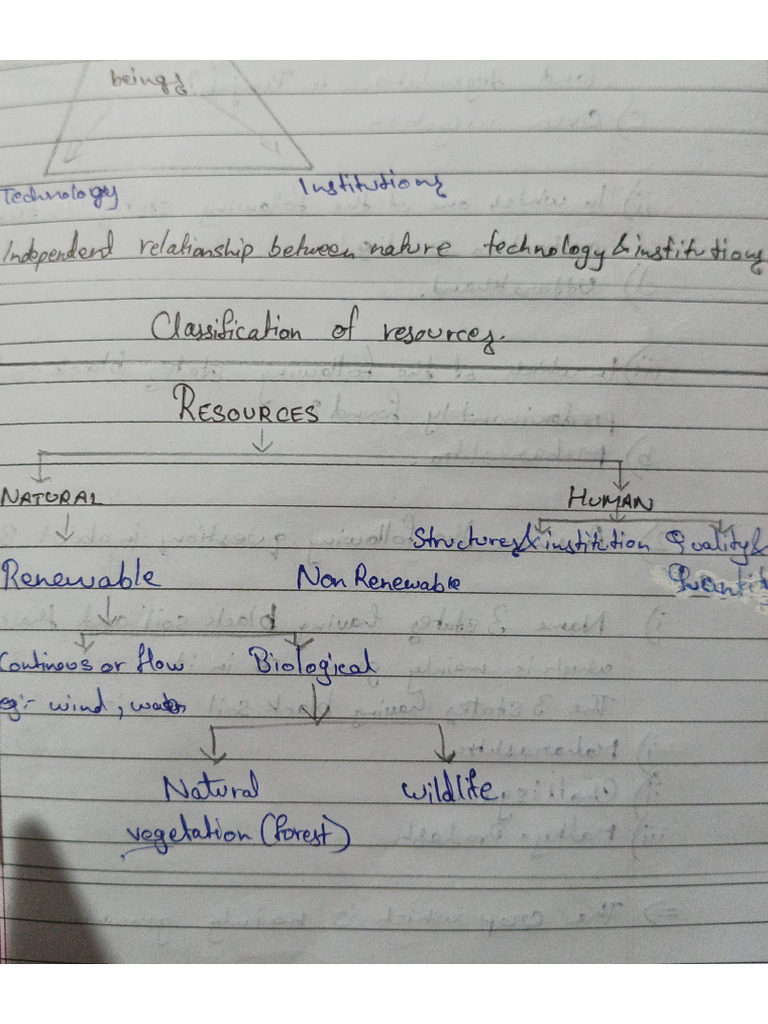 beings
Technology Institutions
Independend relationship between nature technology & institutions
Classification of resources.
RESOURCES
NATURAL HUMAN
Structures & institution Quality &
Renewable Non Renewable Quantit
Continous or flow Biological
eg:- wind, water
Natural wildlife.
vegetation (forest)